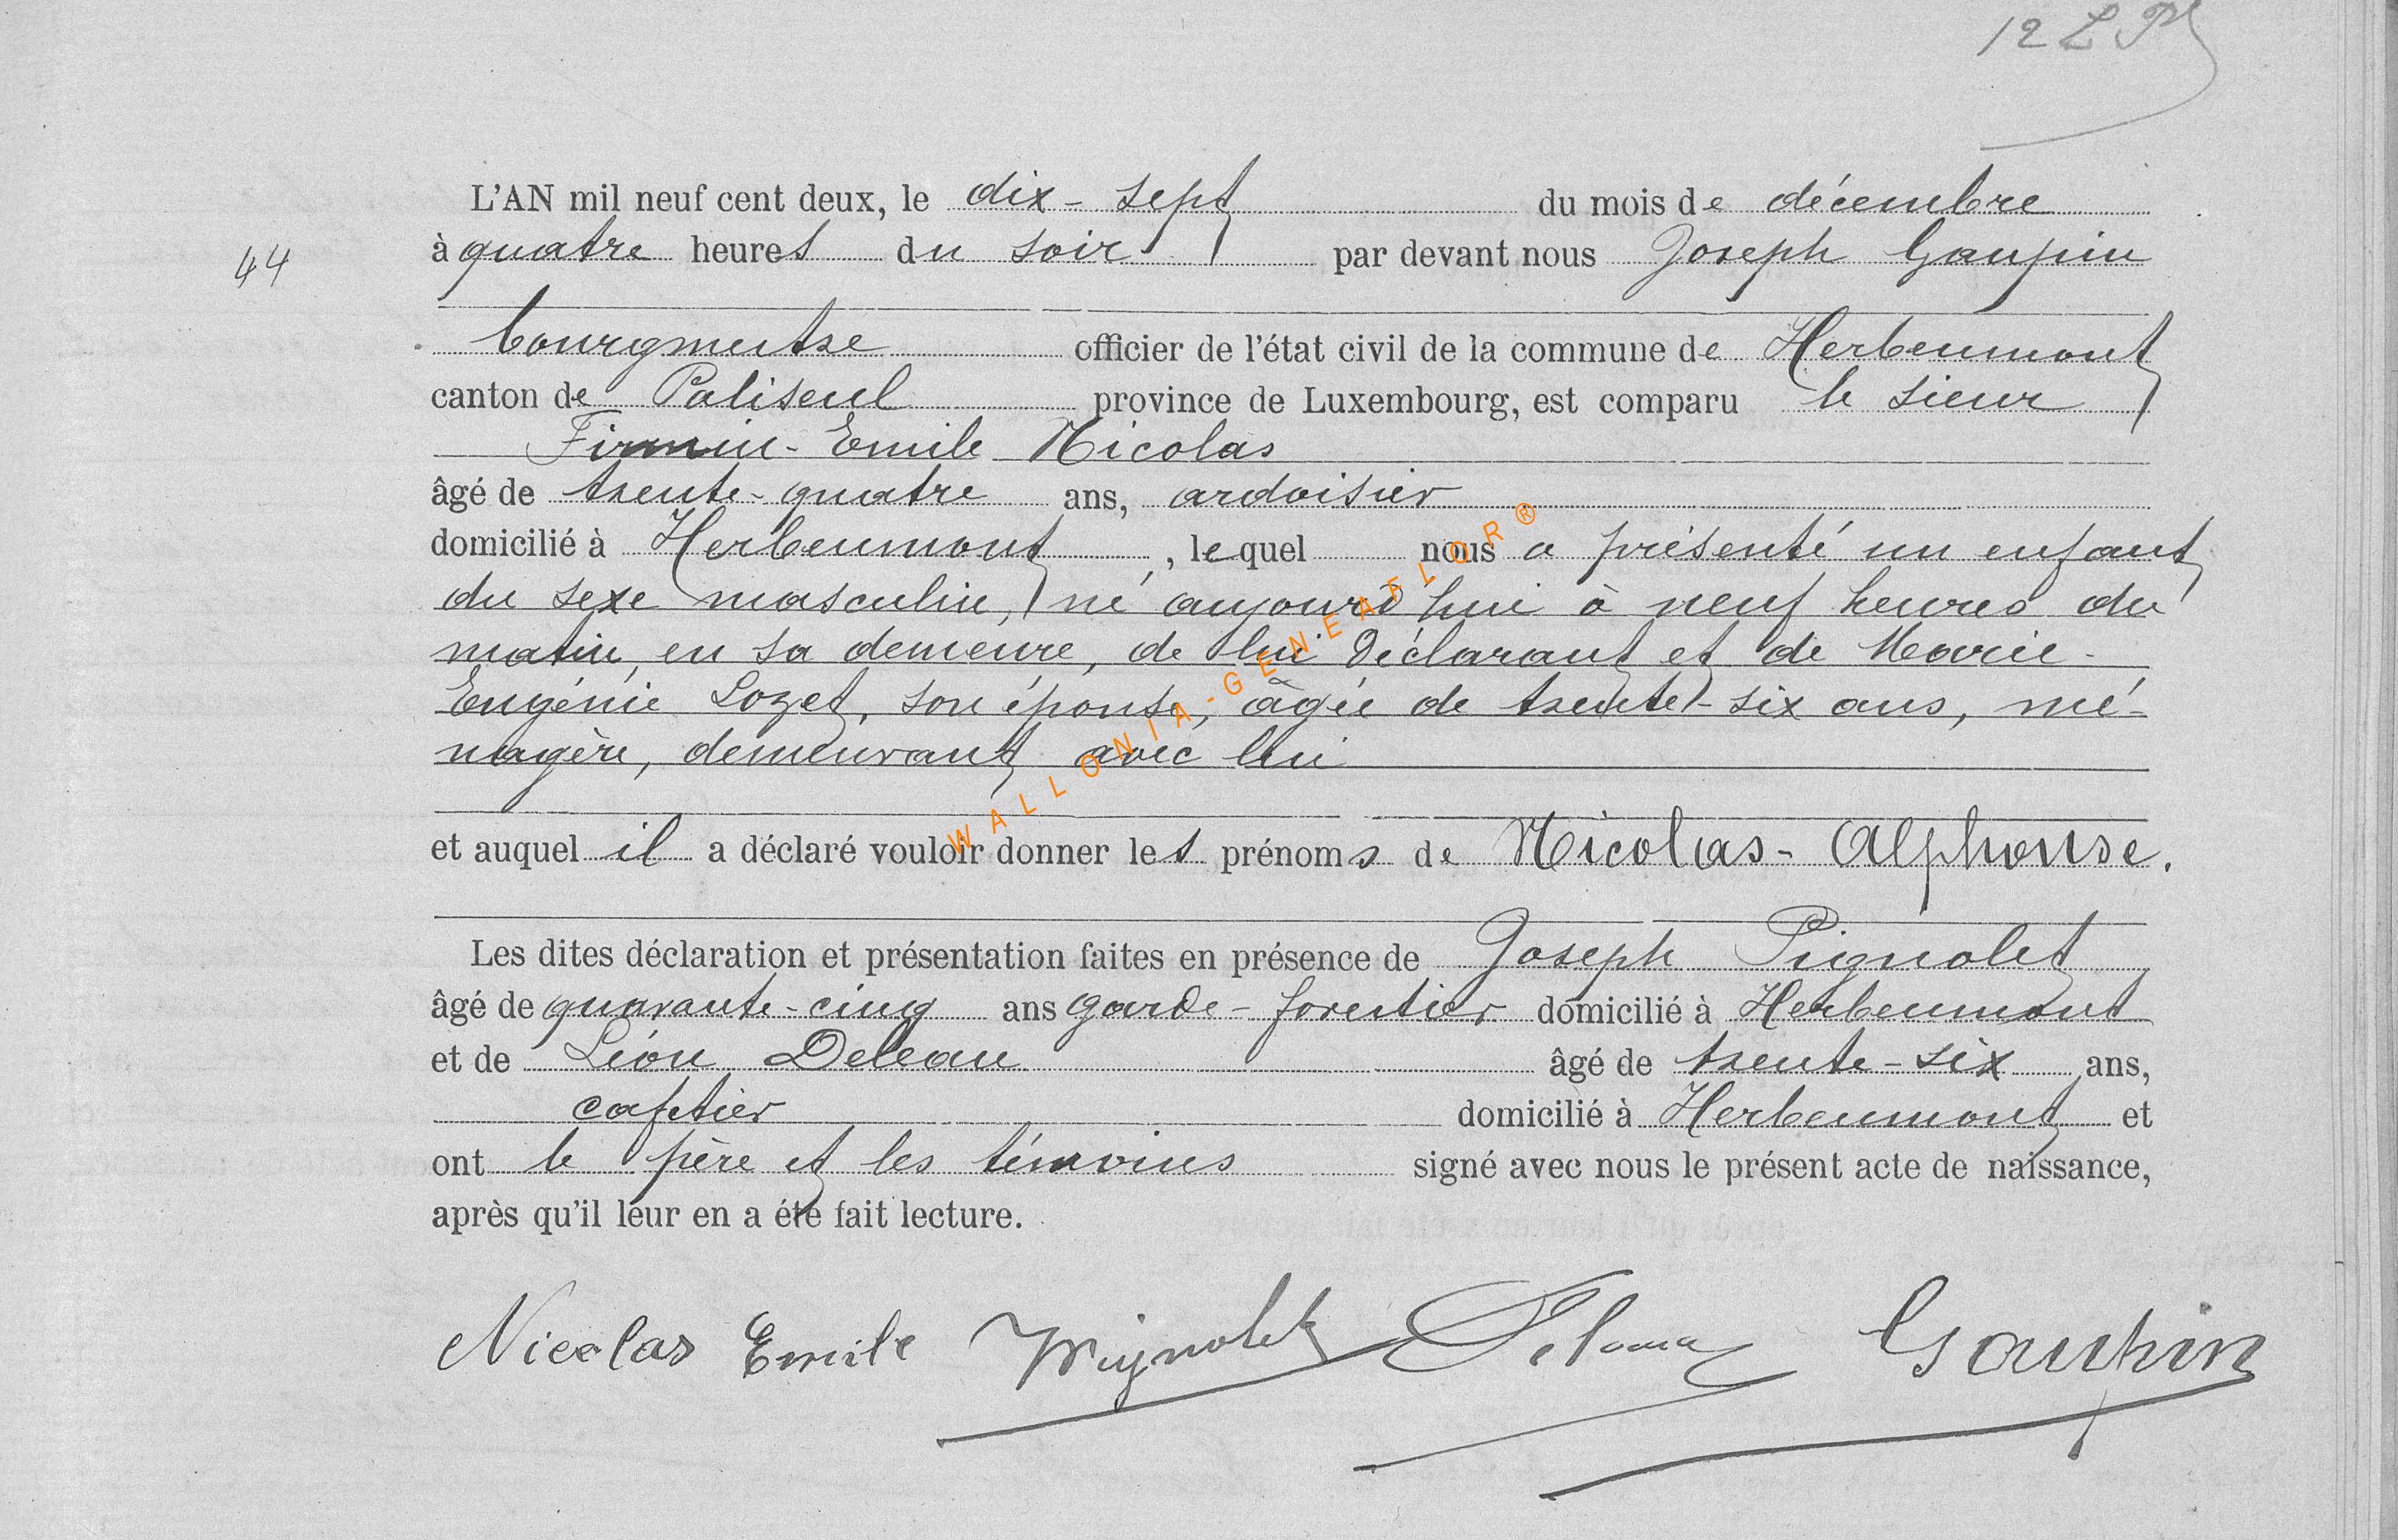 12
L'AN mil neuf cent deux, le dix-sept du mois de décembre
44
à quatre heures du soir par devant nous Joseph Gaupin
bourgmestre officier de l'état civil de la commune de Herbeumont
canton de Paliseul province de Luxembourg, est comparu le sieur
Firmin-Emile Nicolas
âgé de trente-quatre ans, ardoisier
domicilié à Herbeumont, lequel nous a présenté un enfant
du sexe masculin, né aujourd'hui à neuf heures du
matin, en sa demeure, de lui déclarant et de Marie-
Eugénie Lozet, son épouse, âgée de trente-six ans, mé-
nagère, demeurant avec lui
WALLONIA-GENEAFLOR®
et auquel il a déclaré vouloir donner les prénoms de Nicolas-Alphonse.
Les dites déclaration et présentation faites en présence de Joseph Pignolet
âgé de quarante-cinq ans garde-forestier domicilié à Herbeumont
et de Léon Deleau âgé de trente-six ans,
cafetier domicilié à Herbeumont et
ont le père et les témoins signé avec nous le présent acte de naissance,
après qu'il leur en a été fait lecture.
Nicolas Emile Pignolet Deleau Gaupin